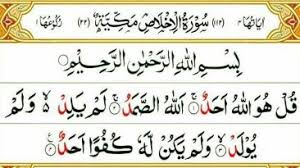 اٰيَاتُهَا ٤ (١١٢) سُوْرَةُ الْاِخْلَاصِ مَكِّيَّةٌ (٢٢) رُكُوْعُهَا ١
بِسْمِ اللّٰهِ الرَّحْمٰنِ الرَّحِيْمِ
قُلْ هُوَ اللّٰهُ اَحَدٌ ۝ اَللّٰهُ الصَّمَدُ ۝ لَمْ يَلِدْ ۝ وَلَمْ
يُوْلَدْ ۝ وَلَمْ يَكُنْ لَّهٗ كُفُوًا اَحَدٌ ۝